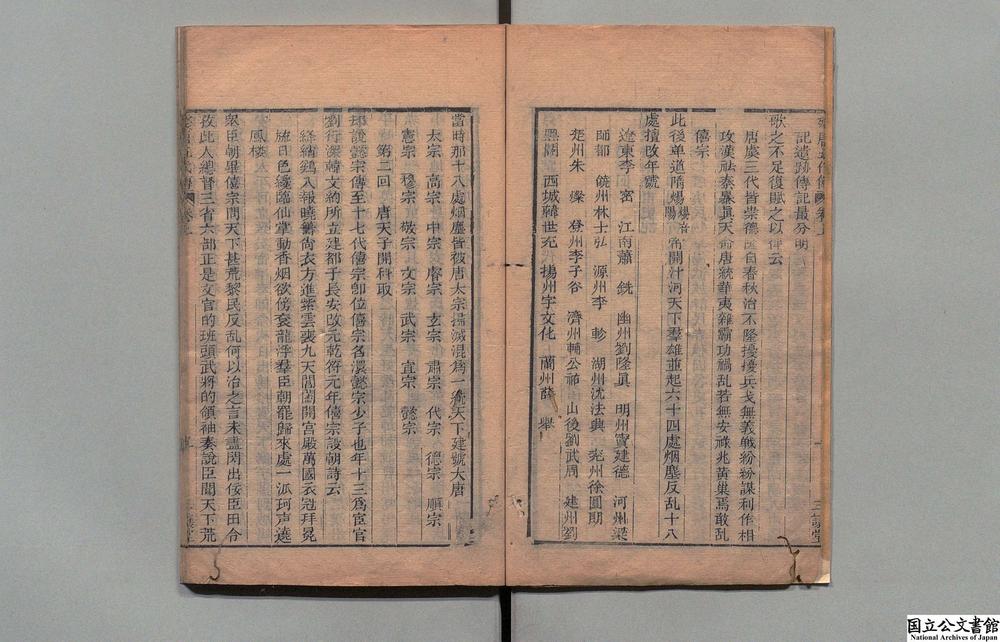 記遺跡傳記最分明
歌之不足復賦之以傳云
唐虞三代皆崇德 自春秋治不隆擾擾兵戈無義戰粉粉謀利作相
攻漢祛秦暴眞天命唐統華夷雜霸功禍乱若無安祿兆黃巢焉敢乱
僖宗
此後单道隋煬 煬帝開汁河天下羣雄並起六十四處烟塵反乱十八
處擅改年號
遼東李 密 江南蕭 銑 幽州劉隆眞 明州竇建德 河州梁
師都 饒州林士弘 源州李 軫 湖州沈法典 兖州徐圓朗
楚州朱 粲 登州李子谷 濟州輔公祏 山後劉武周 建州劉
黑闥 西城韓世充 揚州宇文化 蘭州薛 舉
當時那十八處烟塵皆被唐太宗掃滅混爲一統天下建號大唐
太宗 高宗 中宗 睿宗 玄宗 肅宗 代宗 德宗 順宗
憲宗 穆宗 敬宗 文宗 武宗 宣宗 懿宗
第二回 唐天子開科取
却說懿宗傳至十七代僖宗卽位僖宗名儇懿宗少子也年十三爲宦官
劉行深韓文約所立建都于長安改元乾符元年僖宗設朝詩云
絳綃鷄八報曉籌尙衣方進紫雲裘九天閶闔開宮殿萬國衣冠拜冕
旒日色纔臨仙掌動香烟欲傍袞龍浮羣臣朝罷歸來處一派珂声遶
鳳楼
衆臣朝畢僖宗問天下甚荒黎民反乱何以治之言未盡閃出佞臣田令
孜此人總督三省六部正是文官的班頭武將的領袖奏說臣聞天下荒
国立公文書館
National Archives of Japan